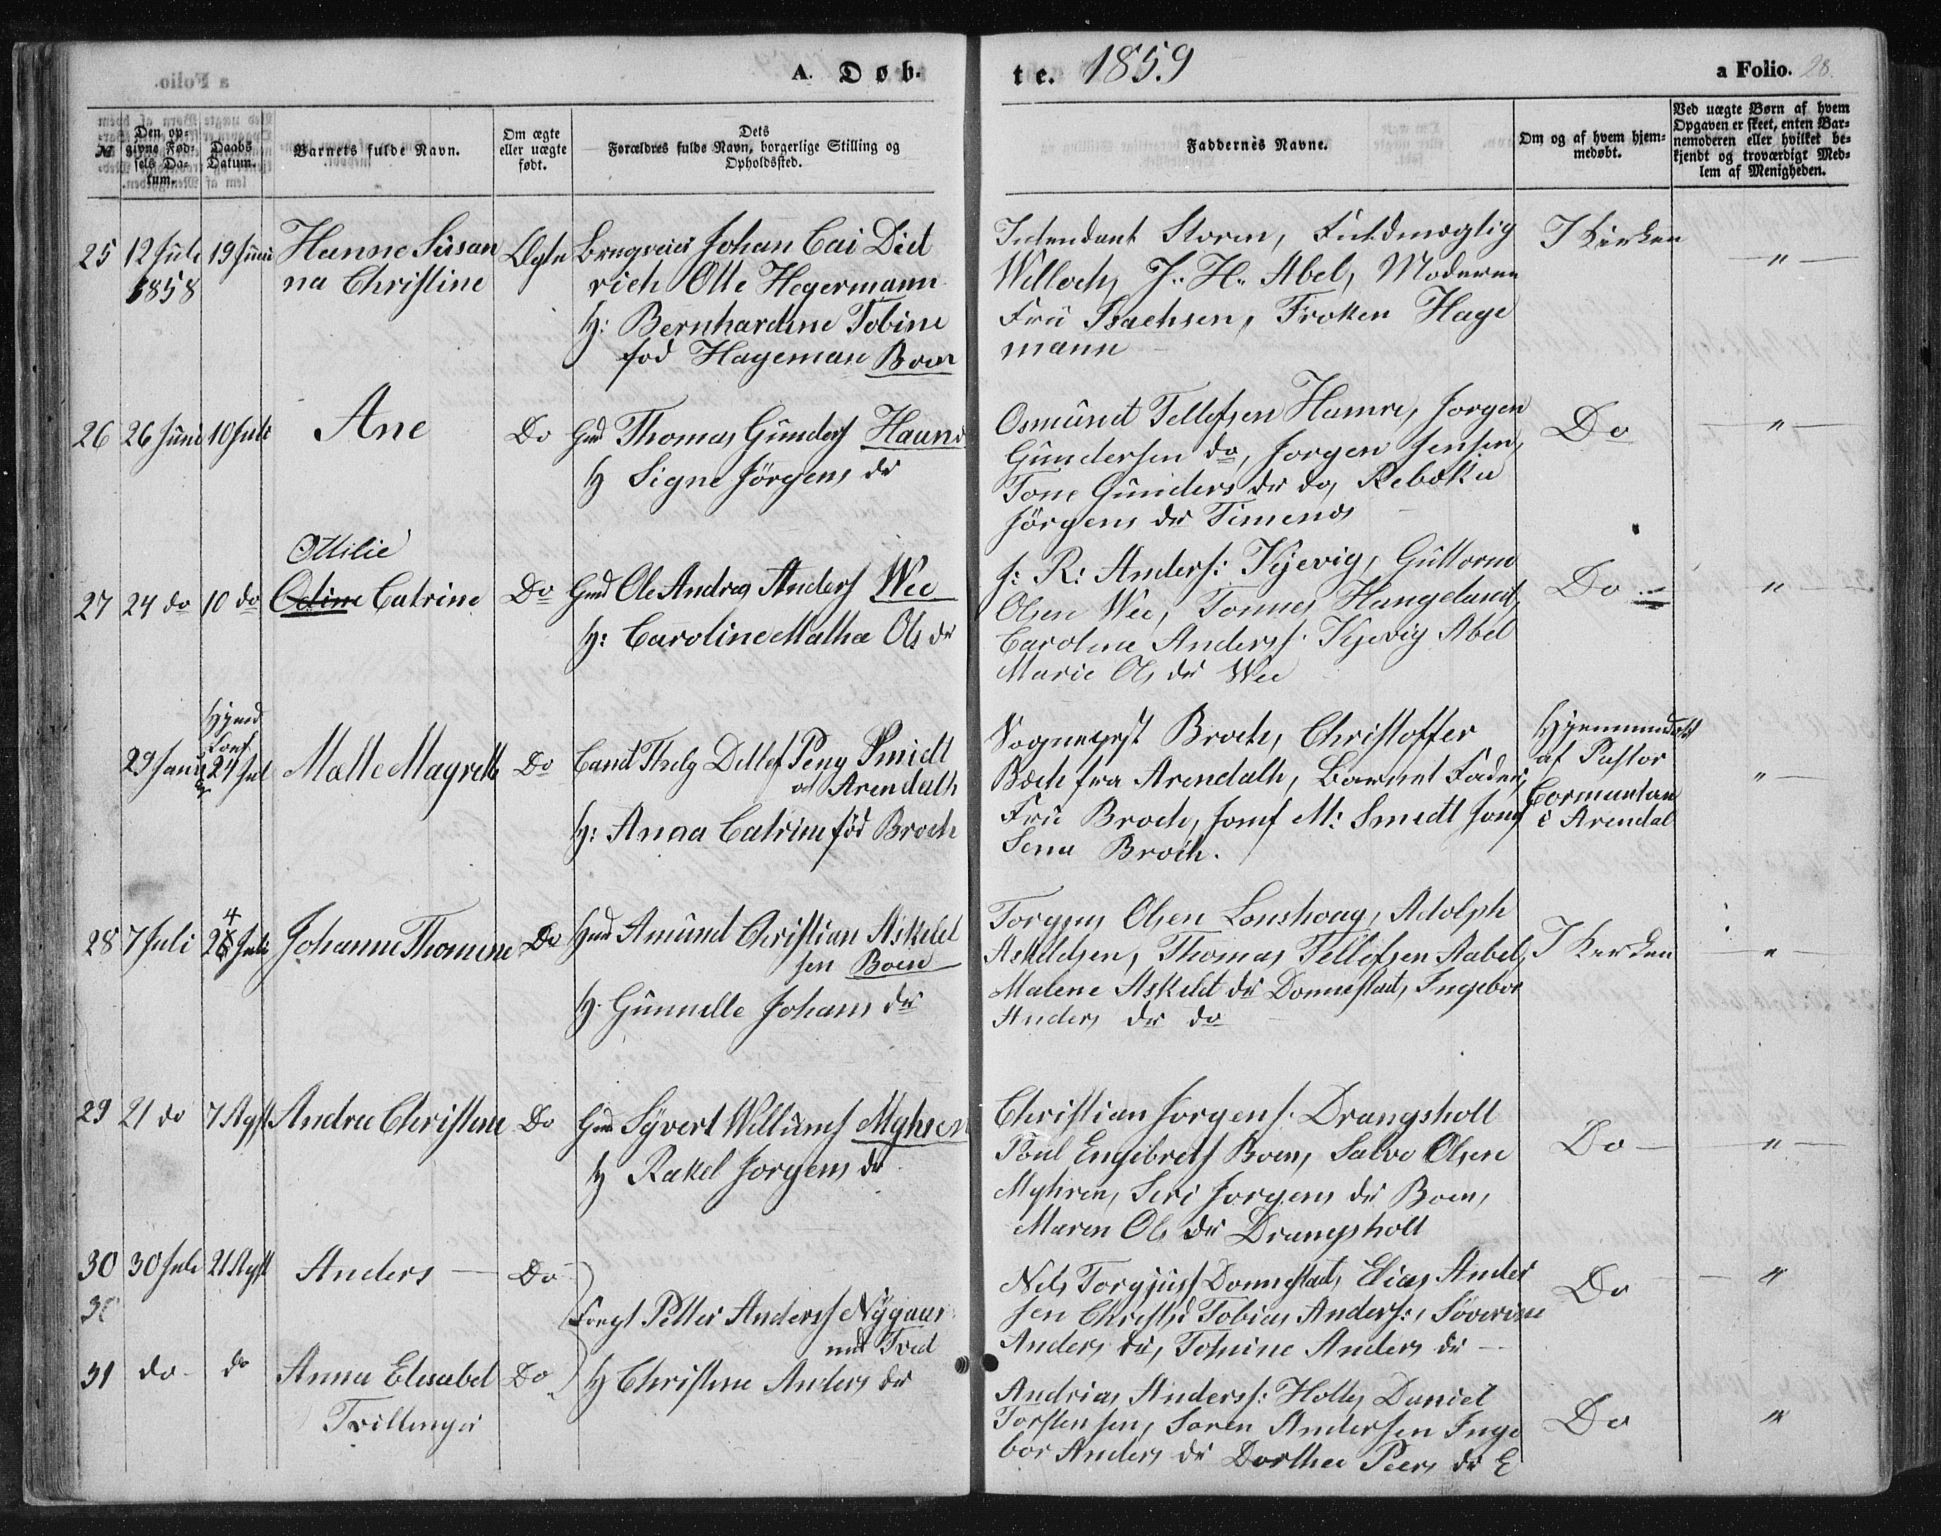 A. Døb-
te. 1859
a Folio. 28.
№
Den op-
givne Fød-
sels Da-
tum.
Daabs
Datum.
Barnets fulde Navn.
Om ægte
eller uægte
født.
Dets
Forældres fulde Navn, borgerlige Stilling og
Opholdssted.
Faddernes Navne.
Om og af hvem hjem-
medøbt.
Ved uægte Børn af hvem
Opgaven er skeet, enten Bar-
nemoderen eller hvilket be-
kjendt og troværdigt Med-
lem af Menigheden.
25 12 Juli 1858 19 Juni
Hanne Susan
na Christine
Ægte
Johan Cai Diet
rich Otte Hegermann
H: Bernhardine Tobine
fød Hageman Boen
Intendant Storm, Fuldmægtig
Willoch, J. H. Abel, Moderen
Fru Isachsen, Frøken Hage
mann
I Kirken
"
26 26 Juni 10 Juli
Ane
Do
Gmd Thomas Gunders
H Signe Jörgens dr
Osmund Tellefsen Hamre, Jorgen
Gundersen do, Jorgen Jensen,
Tone Gunders dr do, Rebekka
Jörgens dr Timenes
Do
"
27 24 do 10 do
Ottilie
Odine Catrine
Do
Gmd Ole Andreas Anders Wee
H: Caroline Mathea Ols dr
J: R: Anders: Kjevig, Guttorm
Olsen Wee, Tonnes Haugeland,
Carolina Anders: Kjevig Abel
Marie Ols dr Wee
Do
"
29 Jan
24 Jul
Malle Magrete
Do
Cand Thelg Detlef Peng Smidt
Arendalh
H: Anna Catrine fød Broch
Sogneprst Broch, Christoffer
Boch fra Arendalh, Barnet Fader,
Fru Broch, Jomf M: Smidt Jomf
Lena Broch.
Hjemmedøbt
af Pastor
i Arendal
"
28 7 Juli 24 Juli
Johanne Thomine
Do
Amund Christian Askeld
sen Boen
H. Gunnelle Johans dr
Torgjus Olsen Lonshoug, Adolph
Askeldsen, Thomas Tellefsen Aabel,
Malene Askeld dr Donnestad, Ingebor
Anders dr do
I Kirken
"
29 21 do 7 Agst
Andrea Christine
Do
Gmd Syvert Willums Myhren
H Rakel Jorgens dr
Christian Jorgens. Drangsholt
Poul Engibrets Boen, Salve Olsen
Myhren, Siri Jorgens dr Boen,
Maren Ols dr Drangsholt
Do
"
30 30 Juli 21 Agst
Anders
Do
Petter Anders Nygaar
Tved
H Christine Anders dr
Nils Torgjus Donnestad, Elias Ander
sen Tobias Anders:, Söverine
Anders dr, Tomine Anders dr
Do
"
31 do do
Anna Elisabet
Tvillinger
Do
Andrias Anders: Holte, Daniel
Torstensen, Soren Andersen Inge
bor Anders dr Dorthea Peers dr E
Do
"